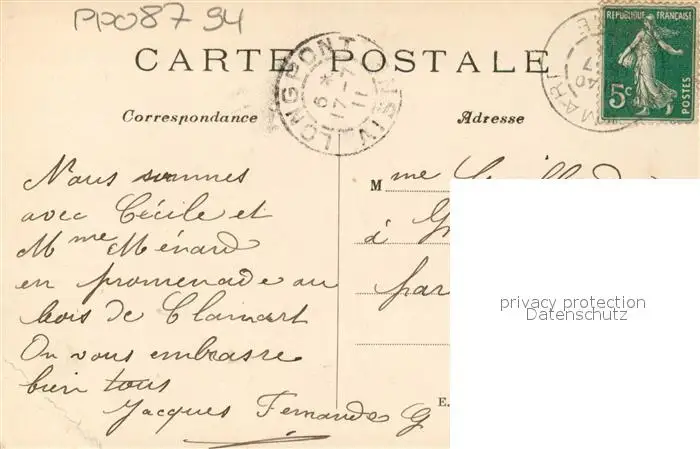 PPO87 94
CARTE POSTALE
RÉPUBLIQUE FRANÇAISE
5c POSTES
LONGPONT
6 * 17 - 7 11
Correspondance
Adresse
Nous sommes
avec Cécile et
Mme Ménard
en promenade au
bois de Clamart
On vous embrasse
bien tous
Jacques Fernande G
Mme
à
par
E.
privacy protection
Datenschutz